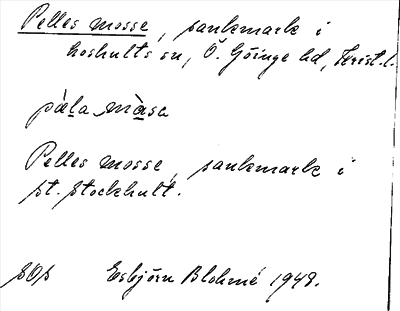 Pelles mosse, sankmark i
Loshults sn, Ö. Göinge hd, Krist. l.
pàla màsa
Pelles mosse, sankmark i
St. Stockhult.
SOS Esbjörn Blohmé 1948.